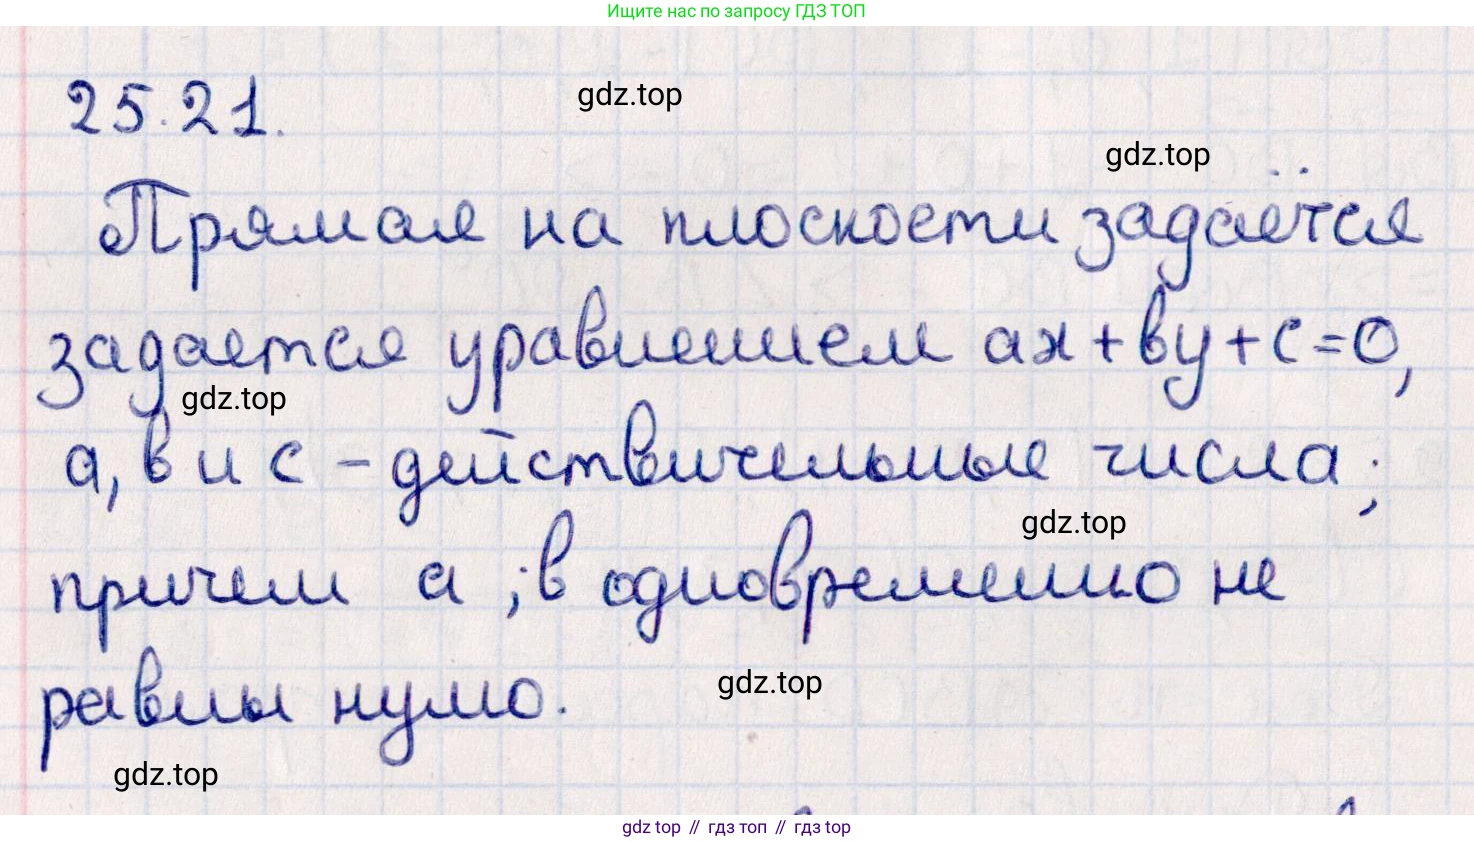 Ищите нас по запросу ГДЗ ТОП
25.21.
gdz.top
gdz.top
Прямая на плоскости задаётся
задается уравнением ax+by+c=0,
gdz.top
a, b и c - действичельные числа;
gdz.top
причем a ; b одновременно не
равны нулю.
gdz.top
gdz.top
gdz top // гдз топ // gdz top